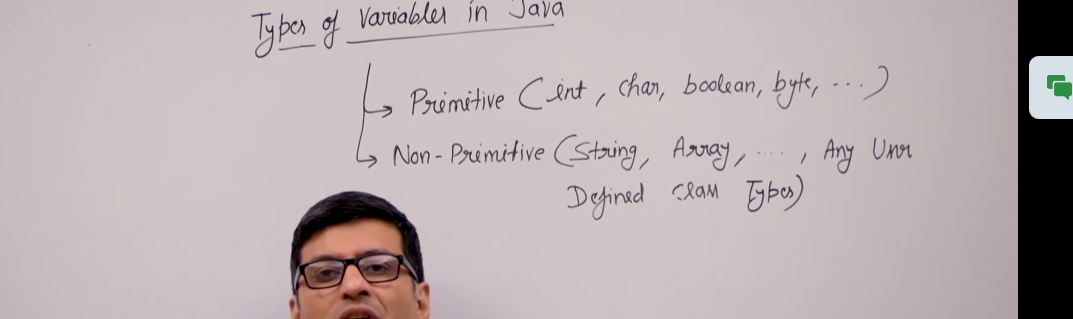 Types of Variables in Java
Primitive (int, char, boolean, byte, ...)
Non-Primitive (String, Array, ...., Any User
Defined class Types)